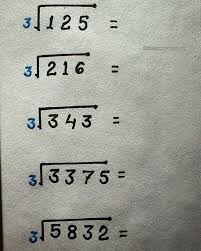 3√125 =
3√216 =
3√343 =
3√3375 =
3√5832 =